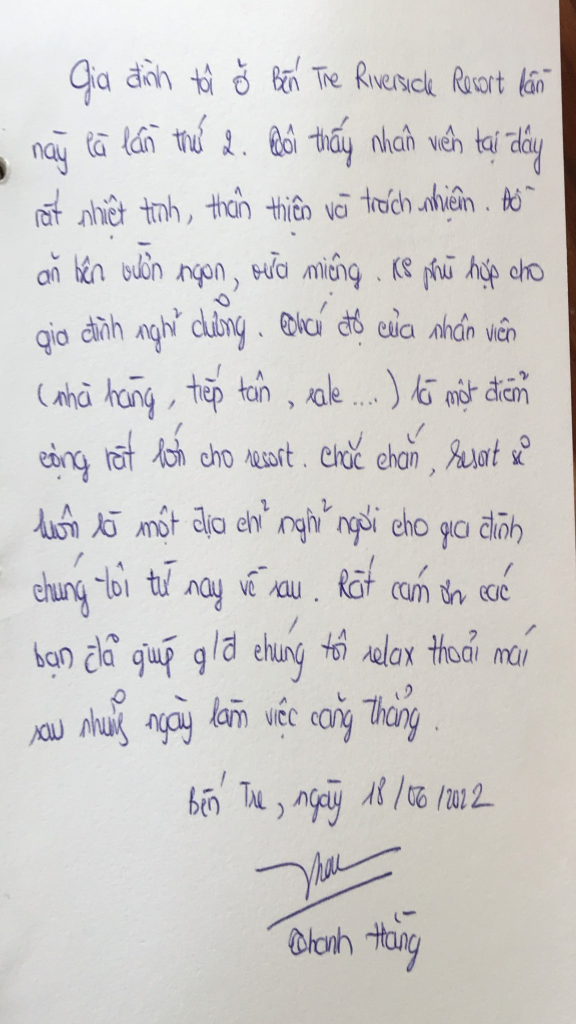 Gia đình tôi ở Bến Tre Riverside Resort lần
này là lần thứ 2. Tôi thấy nhân viên tại đây
rất nhiệt tình, thân thiện và trách nhiệm. Đồ
ăn bên vườn ngon, vừa miệng. KS phù hợp cho
gia đình nghỉ dưỡng. Thái độ của nhân viên
(nhà hàng, tiếp tân, sale ....) là một điểm
cộng rất lớn cho resort. Chắc chắn, resort sẽ
luôn là một địa chỉ nghỉ ngơi cho gia đình
chúng tôi từ nay về sau. Rất cám ơn các
bạn đã giúp g/đ chúng tôi relax thoải mái
sau những ngày làm việc căng thẳng.
Bến Tre, ngày 18/06/2022
Thanh Hằng